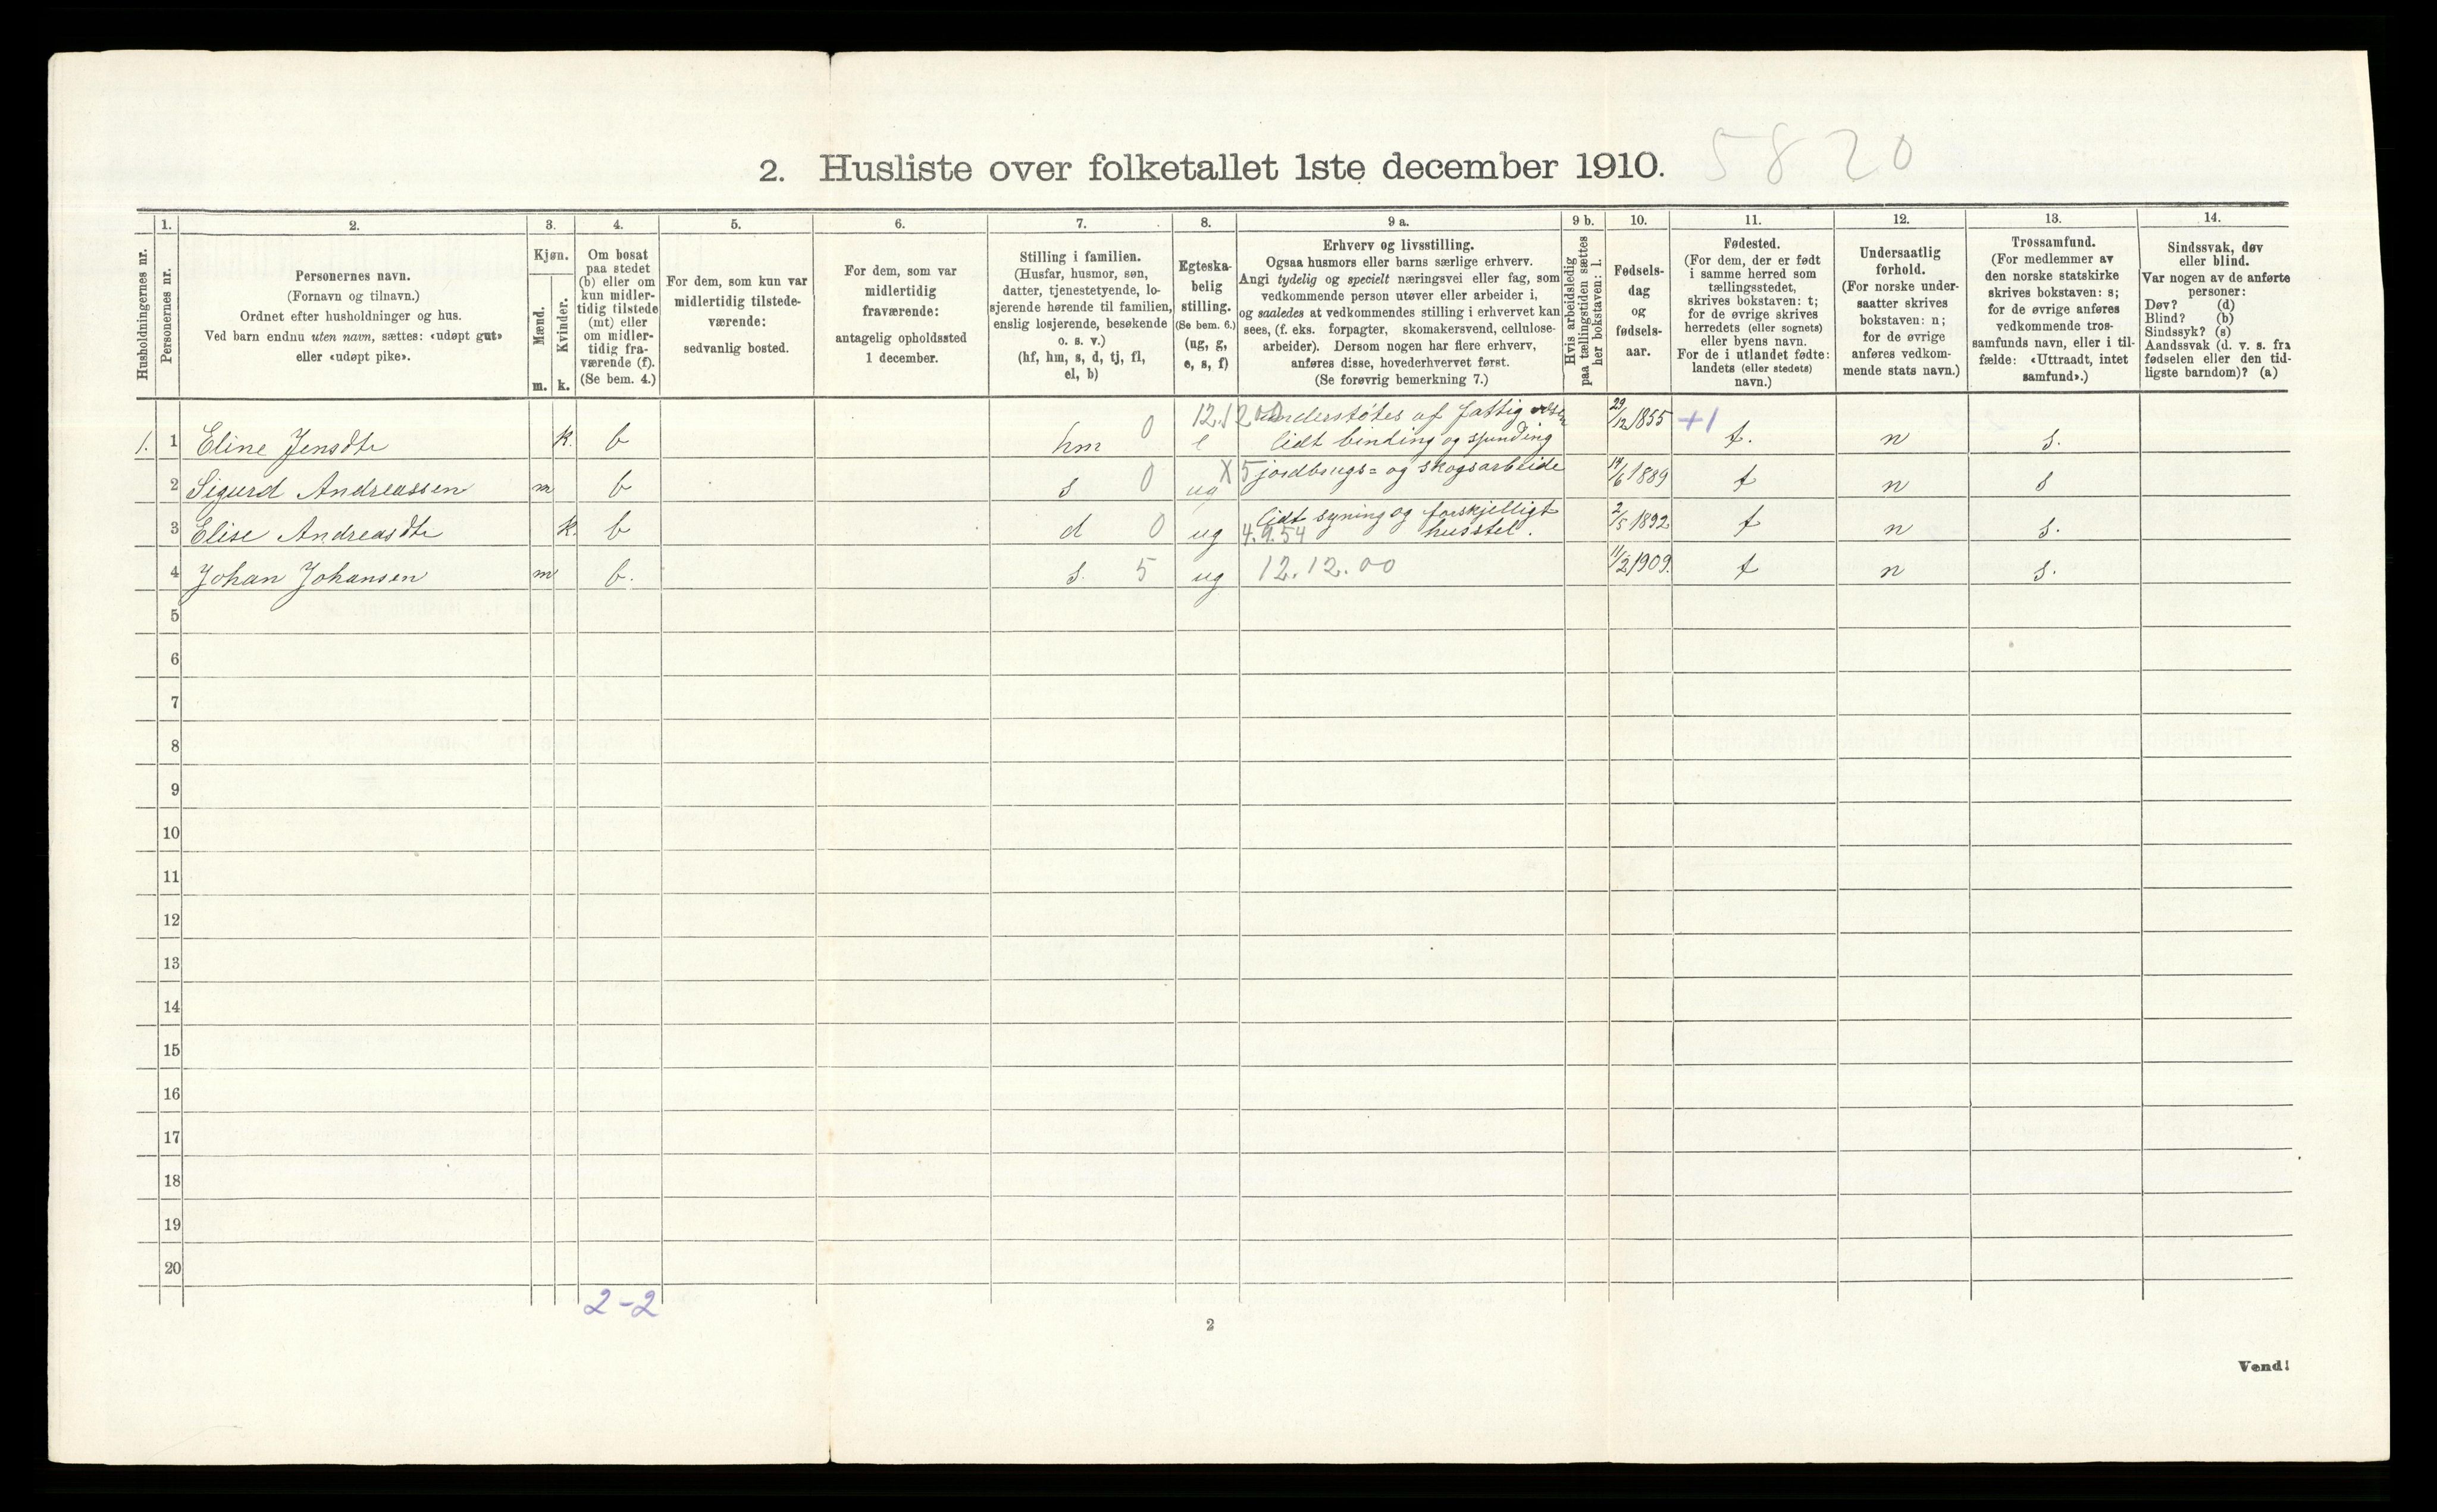 2. Husliste over folketallet 1ste december 1910. 5820
Husholdningernes nr.
1.
Personernes nr.
2.
Personernes navn.
(Fornavn og tilnavn.)
Ordnet efter husholdninger og hus.
Ved barn endnu uten navn, sættes: «udøpt gut»
eller «udøpt pike».
3.
Kjøn.
Mænd.
m.
Kvinder.
k.
4.
Om bosat
paa stedet
(b) eller om
kun midler-
tidig tilstede
(mt) eller
om midler-
tidig fra-
værende (f).
(Se bem. 4.)
5.
For dem, som kun var
midlertidig tilstede-
værende:
sedvanlig bosted.
6.
For dem, som var
midlertidig
fraværende:
antagelig opholdssted
1 december.
7.
Stilling i familien.
(Husfar, husmor, søn,
datter, tjenestetyende, lo-
sjerende hørende til familien,
enslig losjerende, besøkende
o. s. v.)
(hf, hm, s, d, tj, fl,
el, b)
8.
Egteska-
belig
stilling.
(Se bem. 6.)
(ug, g,
e, s, f)
9 a.
Erhverv og livsstilling.
Ogsaa husmors eller barns særlige erhverv.
Angi tydelig og specielt næringsvei eller fag, som
vedkommende person utøver eller arbeider i,
og saaledes at vedkommendes stilling i erhvervet kan
sees, (f. eks. forpagter, skomakersvend, cellulose-
arbeider). Dersom nogen har flere erhverv,
anføres disse, hovederhvervet først.
(Se forøvrig bemerkning 7.)
9 b.
Hvis arbeidsledig
paa tællingstiden sættes
her bokstaven: l.
10.
Fødsels-
dag
og
fødsels-
aar.
11.
Fødested.
(For dem, der er født
i samme herred som
tællingsstedet,
skrives bokstaven: t;
for de øvrige skrives
herredets (eller sognets)
eller byens navn.
For de i utlandet fødte:
landets (eller stedets)
navn.)
12.
Undersaatlig
forhold.
(For norske under-
saatter skrives
bokstaven: n;
for de øvrige
anføres vedkom-
mende stats navn.)
13.
Trossamfund.
(For medlemmer av
den norske statskirke
skrives bokstaven: s;
for de øvrige anføres
vedkommende tros-
samfunds navn, eller i til-
fælde: «Uttraadt, intet
samfund».)
14.
Sindssvak, døv
eller blind.
Var nogen av de anførte
personer:
Døv? (d)
Blind? (b)
Sindssyk? (s)
Aandssvak (d. v. s. fra
fødselen eller den tid-
ligste barndom)? (a)
12.12.00 understøtes af fattig 29/12 1855 +1
1. 1 Eline Jensdtr k. b hm 0 e lidt binding og spinding t. n s.
2 Sigurd Andreassen m b s 0 ug X5 jordbrugs= og skogsarbeide 14/6 1889 t n s
lidt syning og forskjelligt
3 Elise Andreasdtr k. b d 0 ug 4.9.54 husstel. 2/5 1892 t n s.
4 Johan Johansen m b. s. 5 ug 12.12.00 11/2 1909. t n s.
5
6
7
8
9
10
11
12
13
14
15
16
17
18
19
20
2-2
2
Vend!